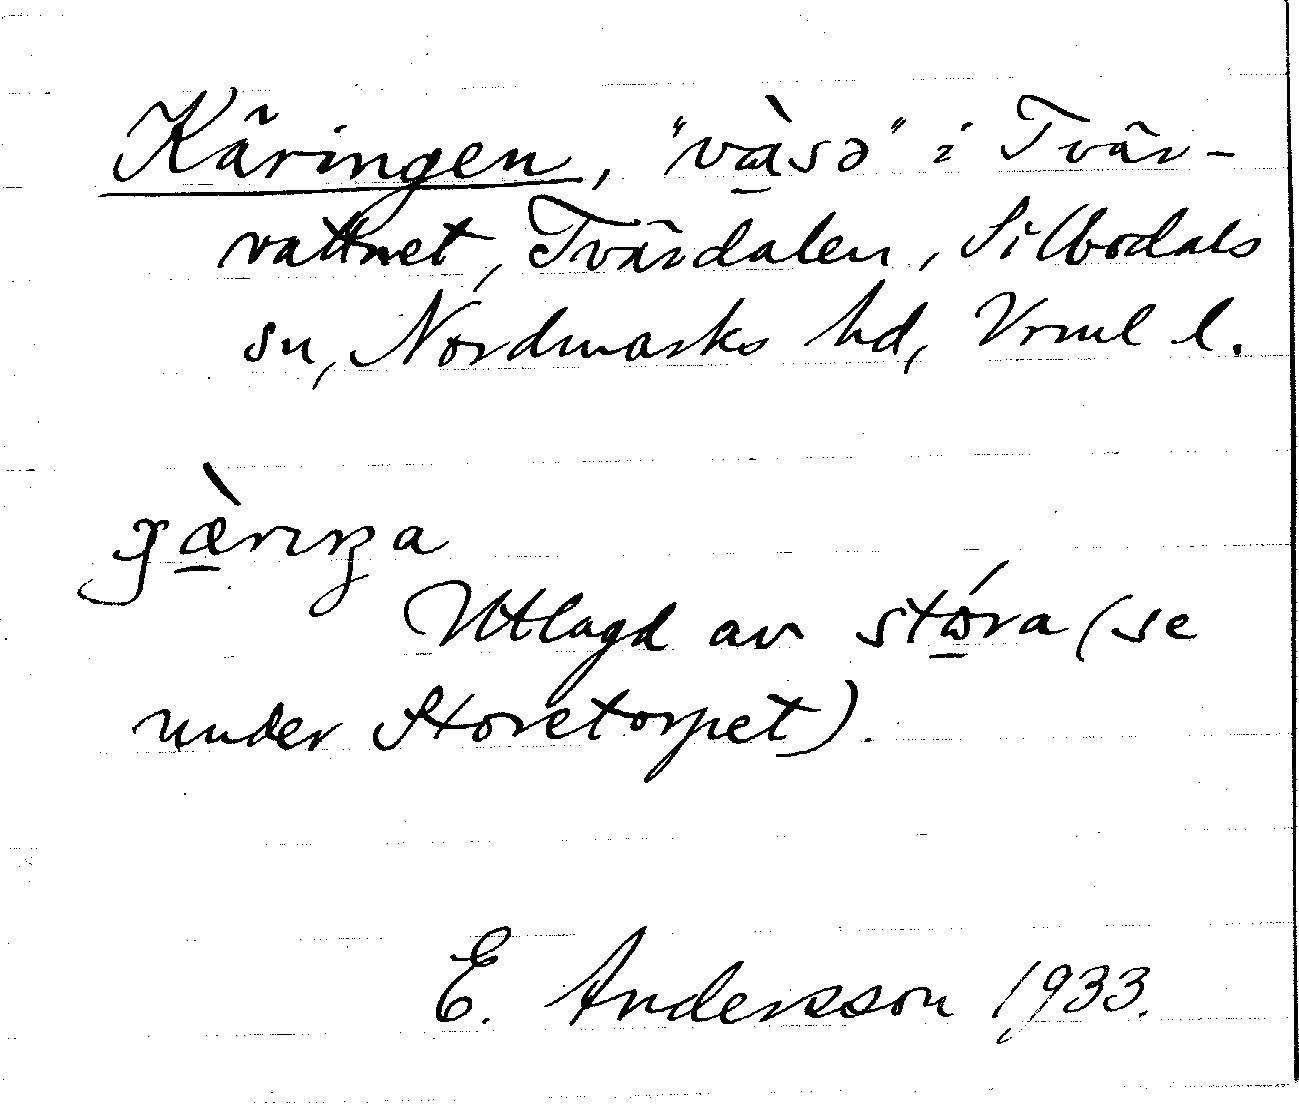 Käringen, "và̱sə" i Tvär-
vattnet, Tvärdalen, Silbodals
sn, Nordmarks hd, Vrml l.
Utlagd av stǿ̱ra (se
under Storetorpet).
E. Andersson 1933.